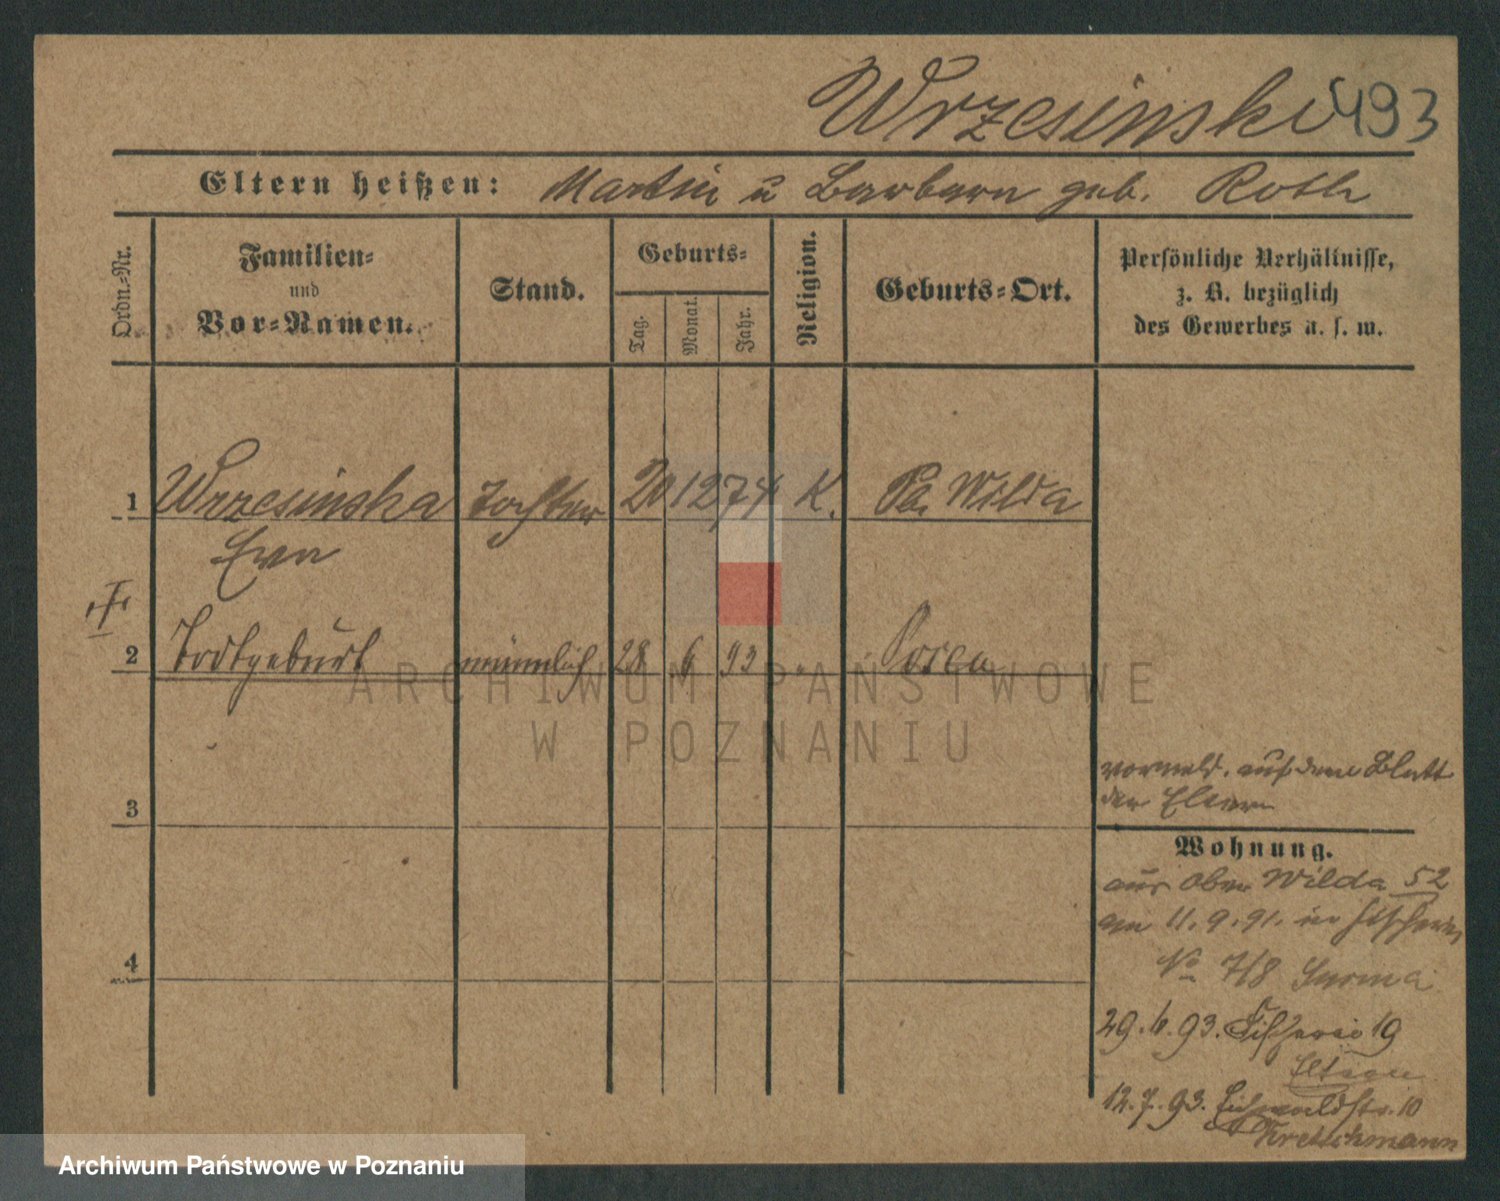 Wrzesinski 493
Eltern heißen: Martin u Barbara geb. Roth
Ordn.-Nr.
Familien-
und
Vor-Namen.
Stand.
Geburts-
Tag.
Monat.
Jahr.
Religion.
Geburts-Ort.
Persönliche Verhältnisse,
z. B. bezüglich
des Gewerbes u. s. w.
1 Wrzesinska Tochter 20 12 74 K. Wilda
Eva
2 Todtgeburt männlich 28 6 93 Posen
3
vormeld. auf dem Blatt
der Eltern
Wohnung.
aus Ober Wilda 52
am 11.9.91. in Fischerei
No 7/8
4
29.6.93. Fischerei 19
12.7.93. Eichwaldstr. 10
Kretschmann
ARCHIWUM PAŃSTWOWE
W POZNANIU
Archiwum Państwowe w Poznaniu